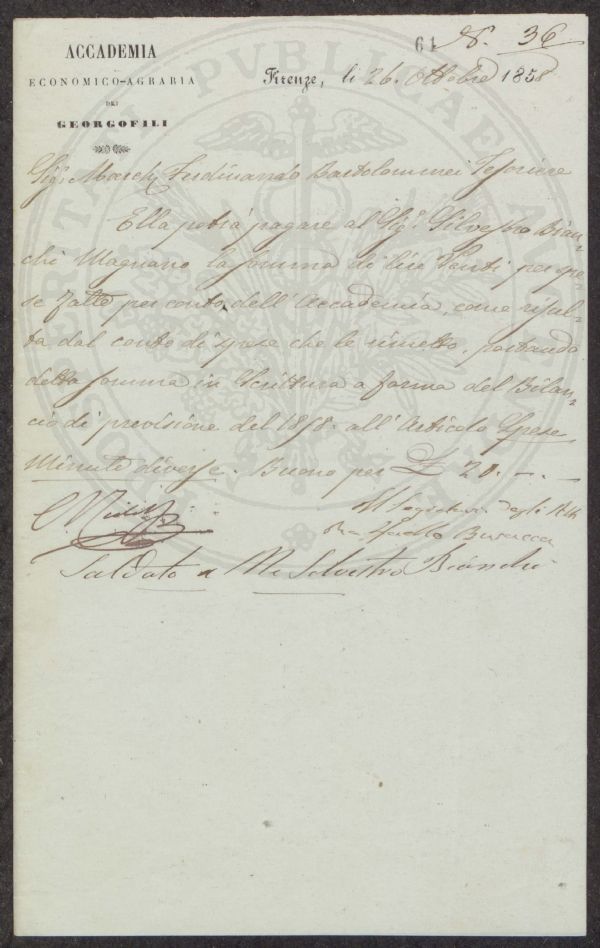 ACCADEMIA
ECONOMICO-AGRARIA
DEI
GEORGOFILI
61 N. 36
Firenze, li 26. Ottobre 1858
Sig: March: Ferdinando Bartolommei Tesoriere
Ella potrà pagare al Sig: Silvestro Bian=
chi Magnano la somma di lire Venti per spe=
se fatte per conto dell'Accademia, come risul=
ta dal conto di spese che le rimetto, portando
detta somma in Scrittura a forma del Bilan=
cio di previsione del 1858. all'Articolo Spese
Minute diverse. Buono per £ 20. - . -
Il Segretario degli Atti
Raffaello Busacca
Saldato a Me Silvestro Bianchi
PROSPERITATI PUBLICAE AUGENDAE